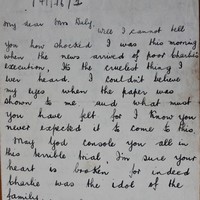 My dear Mrs Daly,
Well I cannot tell
you how shocked I was this morning
when the news arrived of poor Charlie's
execution, It's the cruelest thing I
ever heard, I couldn't believe
my eyes when the paper was
shown to me and what must
you have felt for I know you
never expected it to come to this.
May God console you all in
this terrible trial, I'm sure your
heart is broken for indeed
Charlie was the idol of the
family